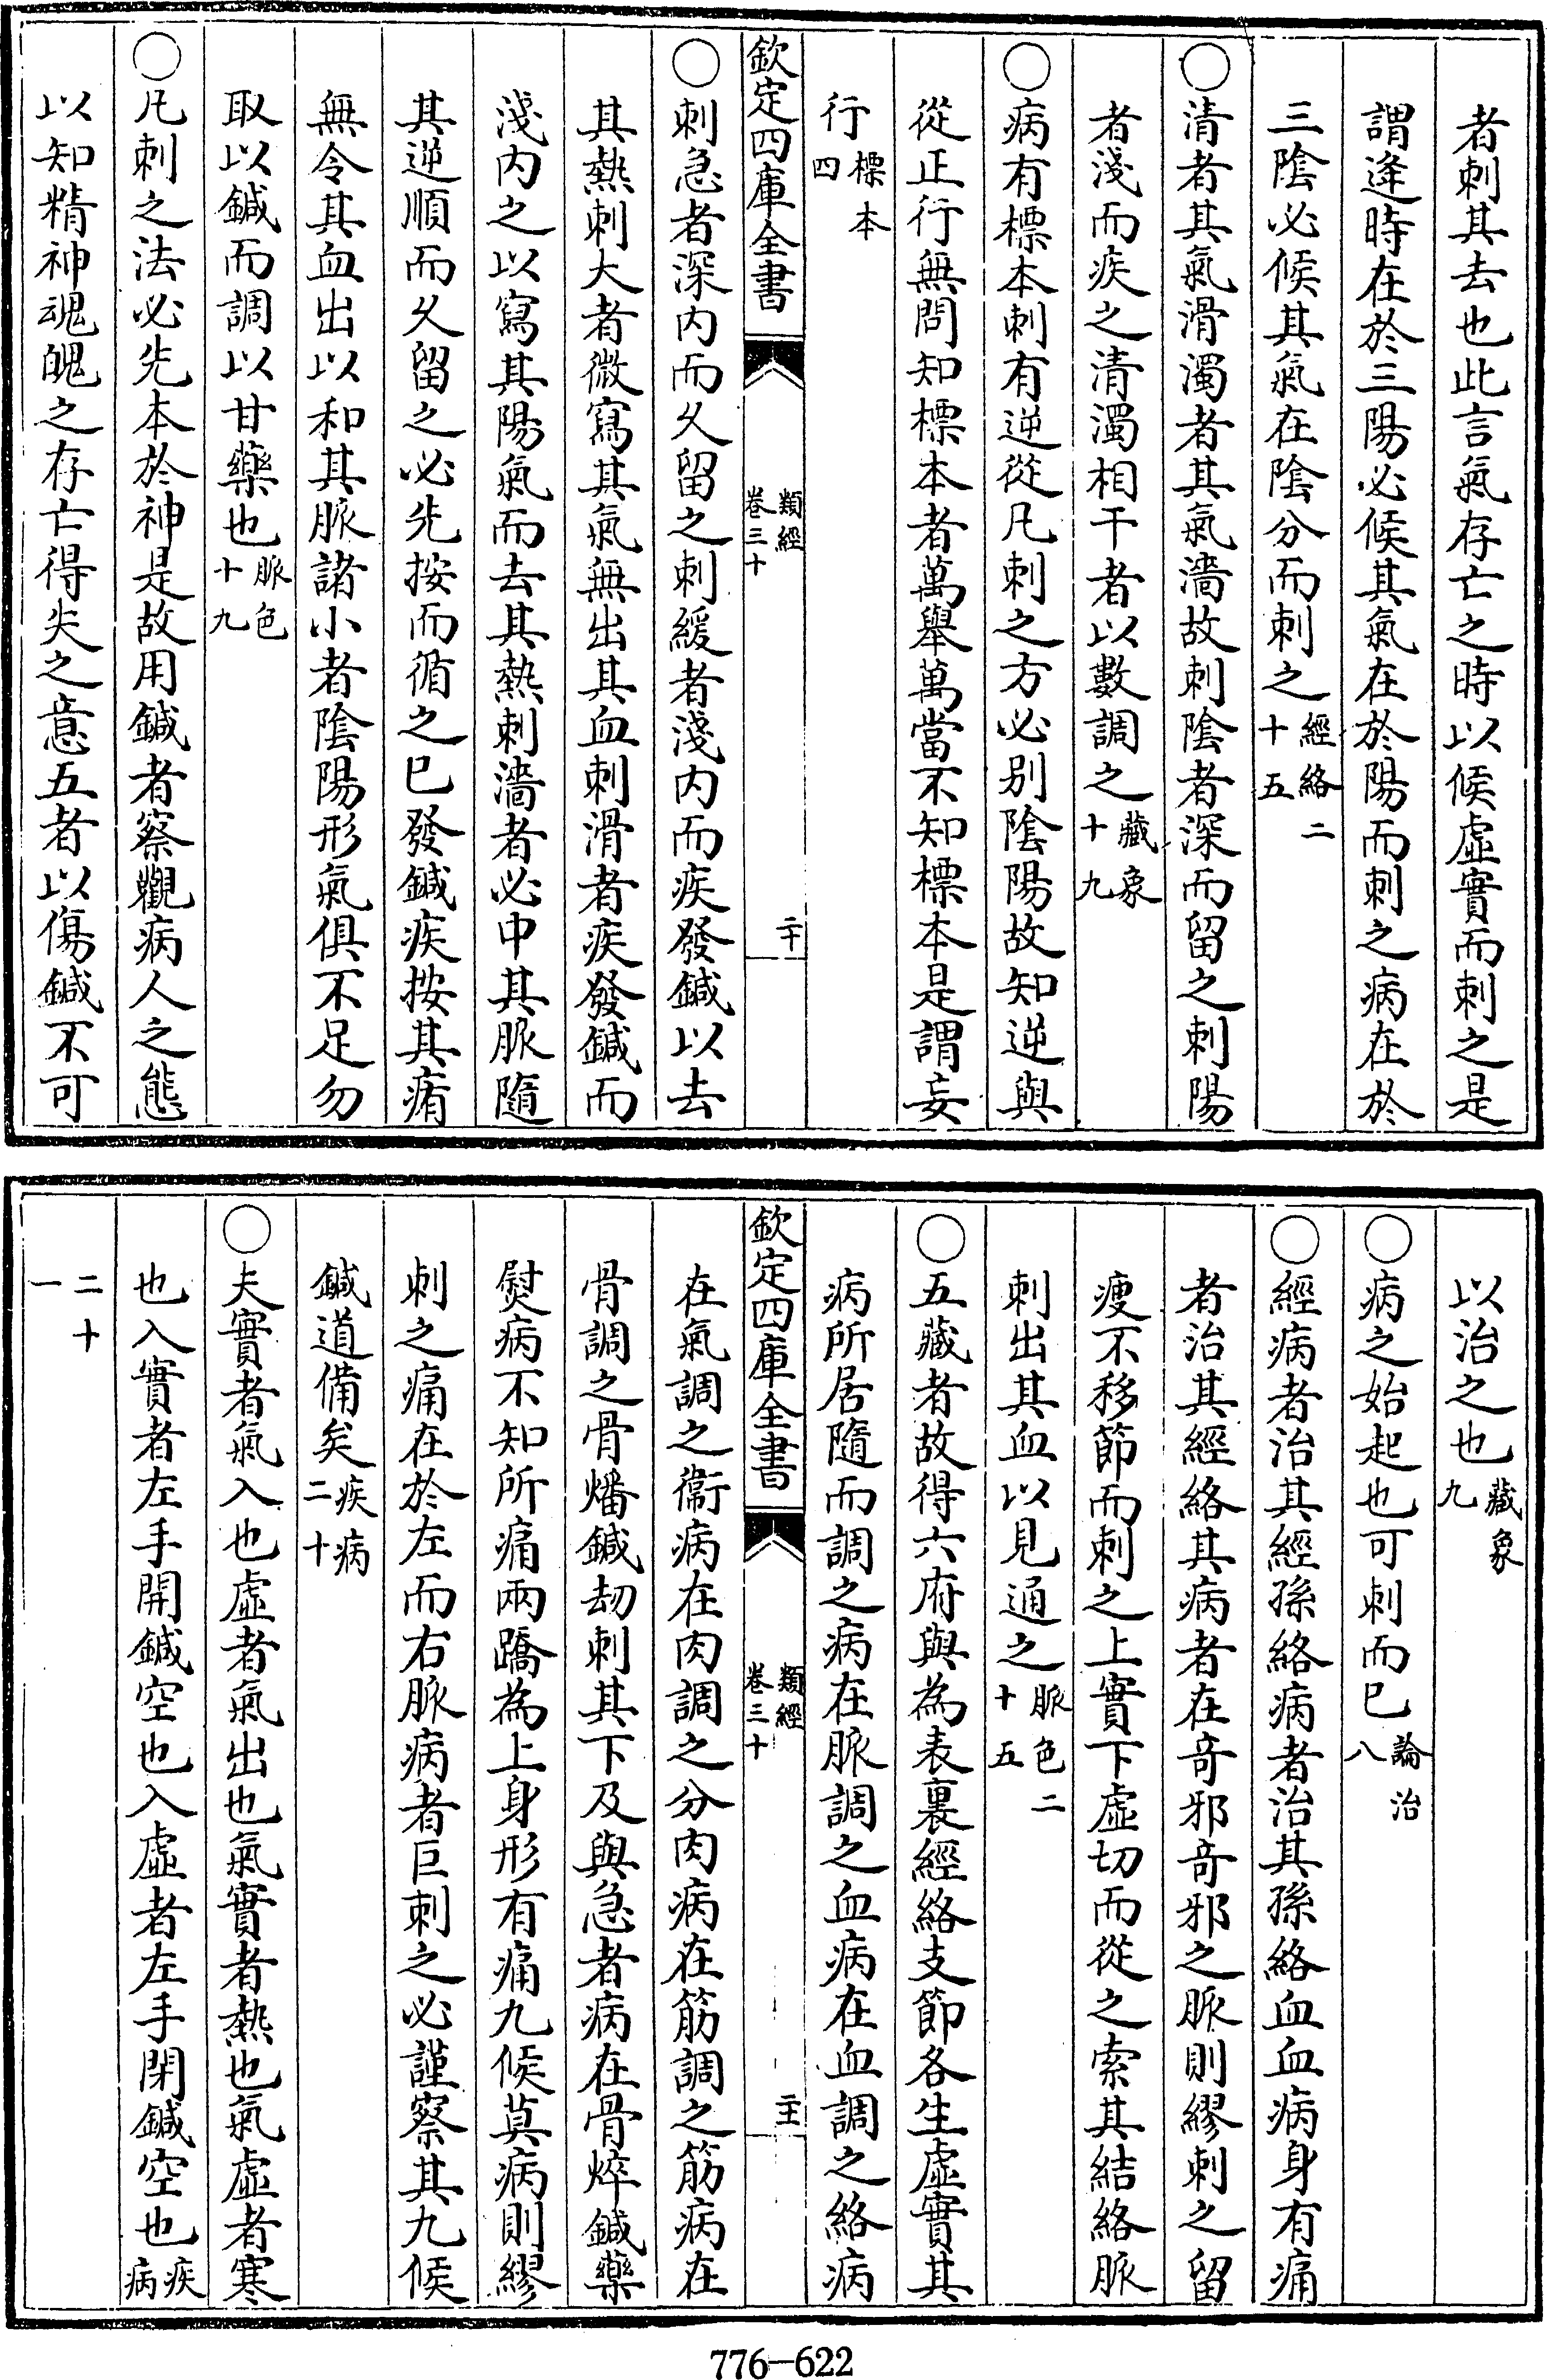 者刺其去也此言氣存亡之時以候虛實而刺之是
謂逢時在於三陽必候其氣在於陽而刺之病在於
三陰必候其氣在陰分而刺之經絡二十五
○清者其氣滑濁者其氣濇故刺陰者深而留之刺陽
者淺而疾之清濁相干者以數調之藏象十九
○病有標本刺有逆從凡刺之方必别陰陽故知逆與
從正行無問知標本者萬舉萬當不知標本是謂妄
行標本四
欽定四庫全書 類經卷三十 二十
○刺急者深内而久留之刺緩者淺内而疾發鍼以去
其熱刺大者微寫其氣無出其血刺滑者疾發鍼而
淺内之以寫其陽氣而去其熱刺濇者必中其脈隨
其逆順而久留之必先按而循之已發鍼疾按其痏
無令其血出以和其脈諸小者陰陽形氣俱不足勿
取以鍼而調以甘藥也脈色十九
○凡刺之法必先本於神是故用鍼者察觀病人之態
以知精神魂魄之存亡得失之意五者以傷鍼不可
以治之也藏象九
○病之始起也可刺而已論治八
○經病者治其經孫絡病者治其孫絡血血病身有痛
者治其經絡其病者在奇邪奇邪之脈則繆刺之留
瘦不移節而刺之上實下虛切而從之索其結絡脈
刺出其血以見通之脈色二十五
○五藏者故得六府與為表裏經絡支節各生虛實其
病所居隨而調之病在脈調之血病在血調之絡病
欽定四庫全書 類經卷三十 二十一
在氣調之衞病在肉調之分肉病在筋調之筋病在
骨調之骨燔鍼刧刺其下及與急者病在骨焠鍼藥
熨病不知所痛兩蹻為上身形有痛九候莫病則繆
刺之痛在於左而右脈病者巨刺之必謹察其九候
鍼道備矣疾病二十
○夫實者氣入也虛者氣出也氣實者熱也氣虛者寒
也入實者左手開鍼空也入虛者左手閉鍼空也疾病
二十一
776-622